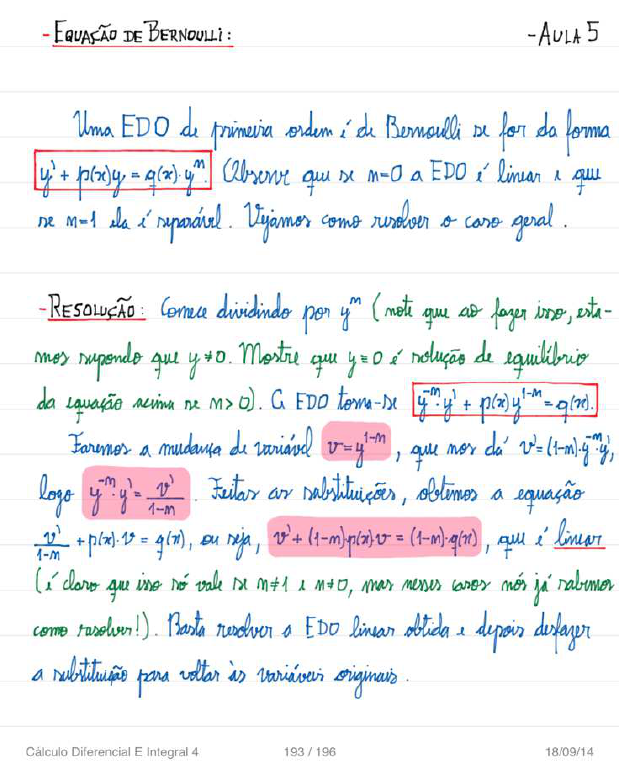 - EQUAÇÃO DE BERNOULLI: - AULA 5
Uma EDO de primeira ordem é de Bernoulli se for da forma
y' + p(x)y = q(x)·yⁿ. (Observe que se n=0 a EDO é linear e que
se n=1 ela é separável. Vejamos como resolver o caso geral.
- RESOLUÇÃO: Comece dividindo por yⁿ (note que ao fazer isso, esta-
mos supondo que y≠0. Mostre que y=0 é solução de equilíbrio
da equação acima se n>0). A EDO torna-se y⁻ⁿ·y' + p(x)y¹⁻ⁿ = q(x).
Faremos a mudança de variável v=y¹⁻ⁿ, que nos dá v'=(1-n)·y⁻ⁿ·y',
logo y⁻ⁿ·y' = v'/1-n. Feitas as substituições, obtemos a equação
v'/1-n + p(x)·v = q(x), ou seja, v' + (1-n)·p(x)·v = (1-n)·q(x), que é linear
(é claro que isso só vale se n≠1 e n≠0, mas nesses casos nós já sabemos
como resolver!). Basta resolver a EDO linear obtida e depois desfazer
a substituição para voltar às variáveis originais.
Cálculo Diferencial E Integral 4 193 / 196 18/09/14